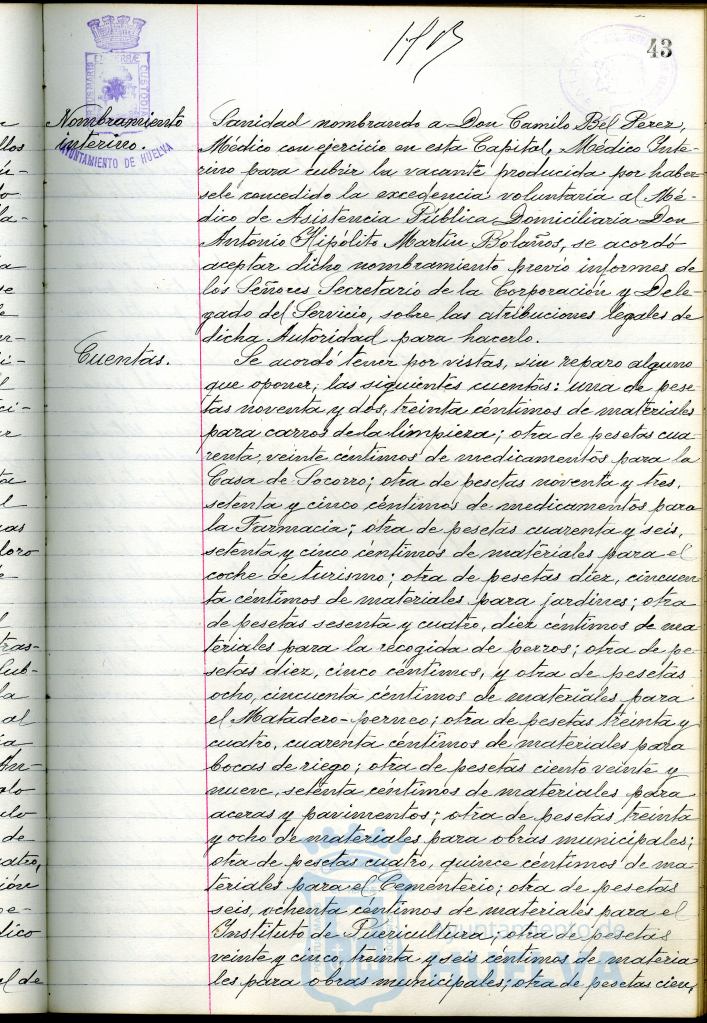 43
Nombramiento
interino.
AYUNTAMIENTO DE HUELVA
Sanidad nombrando a Don Camilo Bel Pérez,
Médico con ejercicio en esta Capital, Médico Inte-
rino para cubrir la vacante producida por haber-
sele concedido la excedencia voluntaria al Mé-
dico de Asistencia Pública Domiciliaria Don
Antonio Hipólito Martín Bolaños, se acordó
aceptar dicho nombramiento previo informes de
los Señores Secretario de la Corporación y Dele-
gado del Servicio, sobre las atribuciones legales de
dicha Autoridad para hacerlo.
Cuentas.
Se acordó tener por vistas, sin reparo alguno
que oponer, las siguientes cuentas: una de pese-
tas noventa y dos, treinta céntimos de materiales
para carros de la limpieza; otra de pesetas cua-
renta, veinte céntimos de medicamentos para la
Casa de Socorro; otra de pesetas noventa y tres,
setenta y cinco céntimos de medicamentos para
la Farmacia; otra de pesetas cuarenta y seis,
setenta y cinco céntimos de materiales para el
coche de turismo; otra de pesetas diez, cincuen-
ta céntimos de materiales para jardines; otra
de pesetas sesenta y cuatro, diez céntimos de ma-
teriales para la recogida de perros; otra de pe-
setas diez, cinco céntimos, y otra de pesetas
ocho, cincuenta céntimos de materiales para
el Matadero-perneo; otra de pesetas treinta y
cuatro, cuarenta céntimos de materiales para
bocas de riego; otra de pesetas ciento veinte y
nueve, setenta céntimos de materiales para
aceras y pavimentos; otra de pesetas treinta
y ocho de materiales para obras municipales;
otra de pesetas cuatro, quince céntimos de ma-
teriales para el Cementerio; otra de pesetas
seis, ochenta céntimos de materiales para el
Instituto de Puericultura; otra de pesetas
veinte y cinco, treinta y seis céntimos de materia-
les para obras municipales; otra de pesetas cien,
Ayuntamiento de
HUELVA